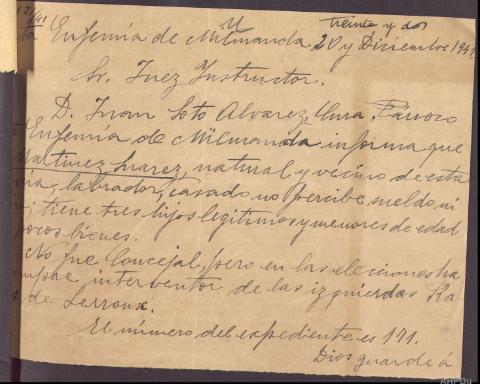 17/41
ta Eufemia de Milmanda 20 y Diciembre 1941
treinta y dos
Sr. Juez Instructor.
D. Juan Soto Alvarez, Cura Párroco
Eufemia de Milmanda informa que
Martinez Suarez, natural y vecino de esta
labrador, casado, no percibe sueldo ni
tiene tres hijos legitimos y menores de edad
pocos bienes.
No fue Concejal, pero en las elecciones ha
interventor de las izquierdas Ra
de Lerroux.
El número del expediente es 171.
Dios guarde á
AHPOu